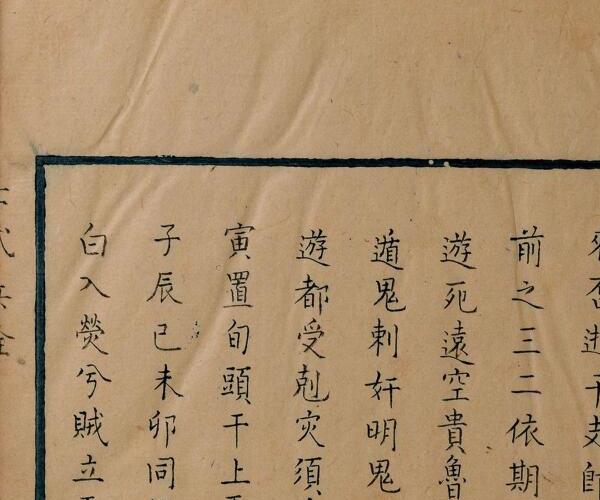 干支
前之三二依期
遊死遠空貴魯
遁鬼刺奸明鬼
遊都受剋灾須
寅置旬頭干上
子辰巳未卯同
白入熒兮賊立